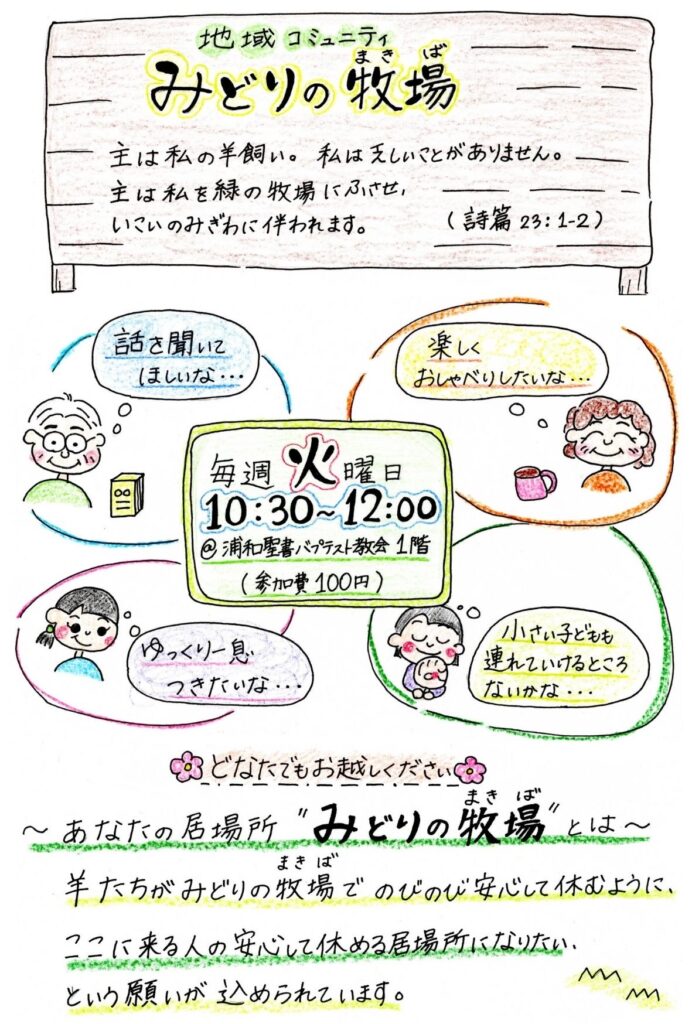 地域 コミュニティ
まき ば
みどりの 牧場
主は私の羊飼い。 私は乏しいことがありません。
主は私を緑の牧場にふさせ、
いこいのみぎわに伴われます。 (詩篇 23:1-2)
話を聞いて
ほしいな・・・
楽しく
おしゃべりしたいな・・・
毎週 火 曜日
10:30~12:00
@ 浦和聖書バプテスト教会 1階
(参加費 100円)
ゆっくり一息
つきたいな・・・
小さい子どもも
連れていけるところ
ないかな・・・
どなたでもお越しください
まき ば
~ あなたの居場所 "みどりの牧場" とは ~
まき ば
羊たちがみどりの牧場で のびのび安心して休むように、
ここに来る人の安心して休める居場所になりたい、
という願いが 込められています。